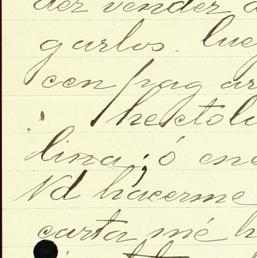 der vender
garlos. lue
cen pag ar
hectol
lina; ó ene
Vd hacerme
carta me h